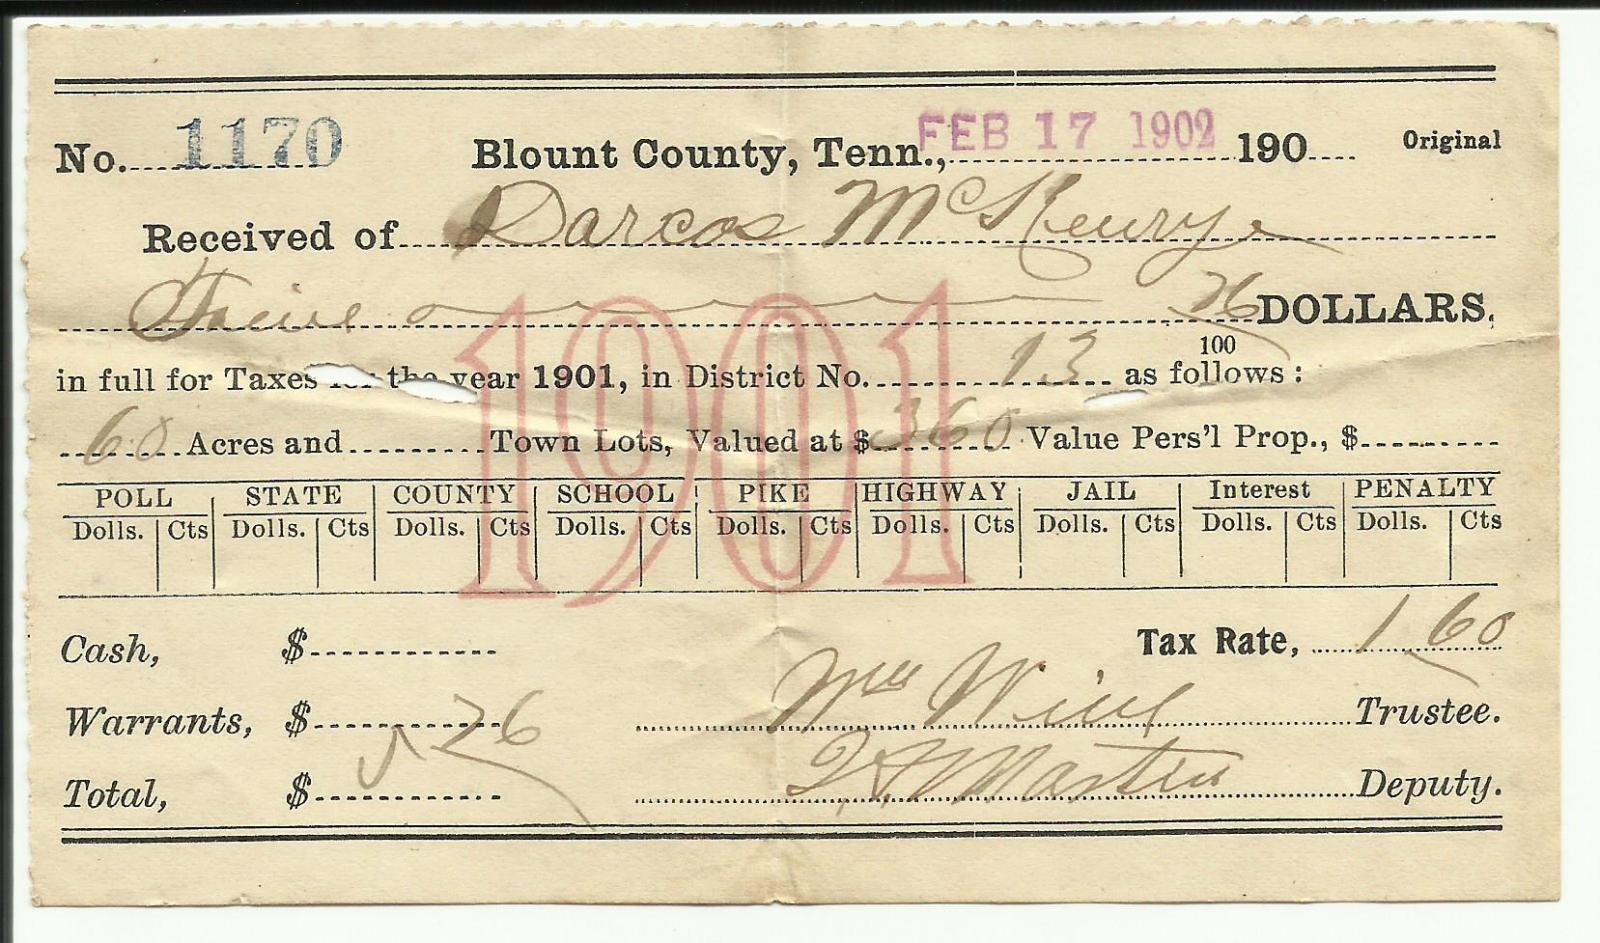 No. 1170 Blount County, Tenn., FEB 17 1902 190 Original
Received of Darcos McKenrye
Five 76/100 DOLLARS,
in full for Taxes for the year 1901, in District No. 13 as follows:
60 Acres and Town Lots, Valued at $360 Value Pers'l Prop., $
1901
POLL STATE COUNTY SCHOOL PIKE HIGHWAY JAIL Interest PENALTY
Dolls. Cts Dolls. Cts Dolls. Cts Dolls. Cts Dolls. Cts Dolls. Cts Dolls. Cts Dolls. Cts Dolls. Cts
Cash, $ Tax Rate, 1 60
Warrants, $ Wm Trustee.
5 76
Total, $ Martin Deputy.